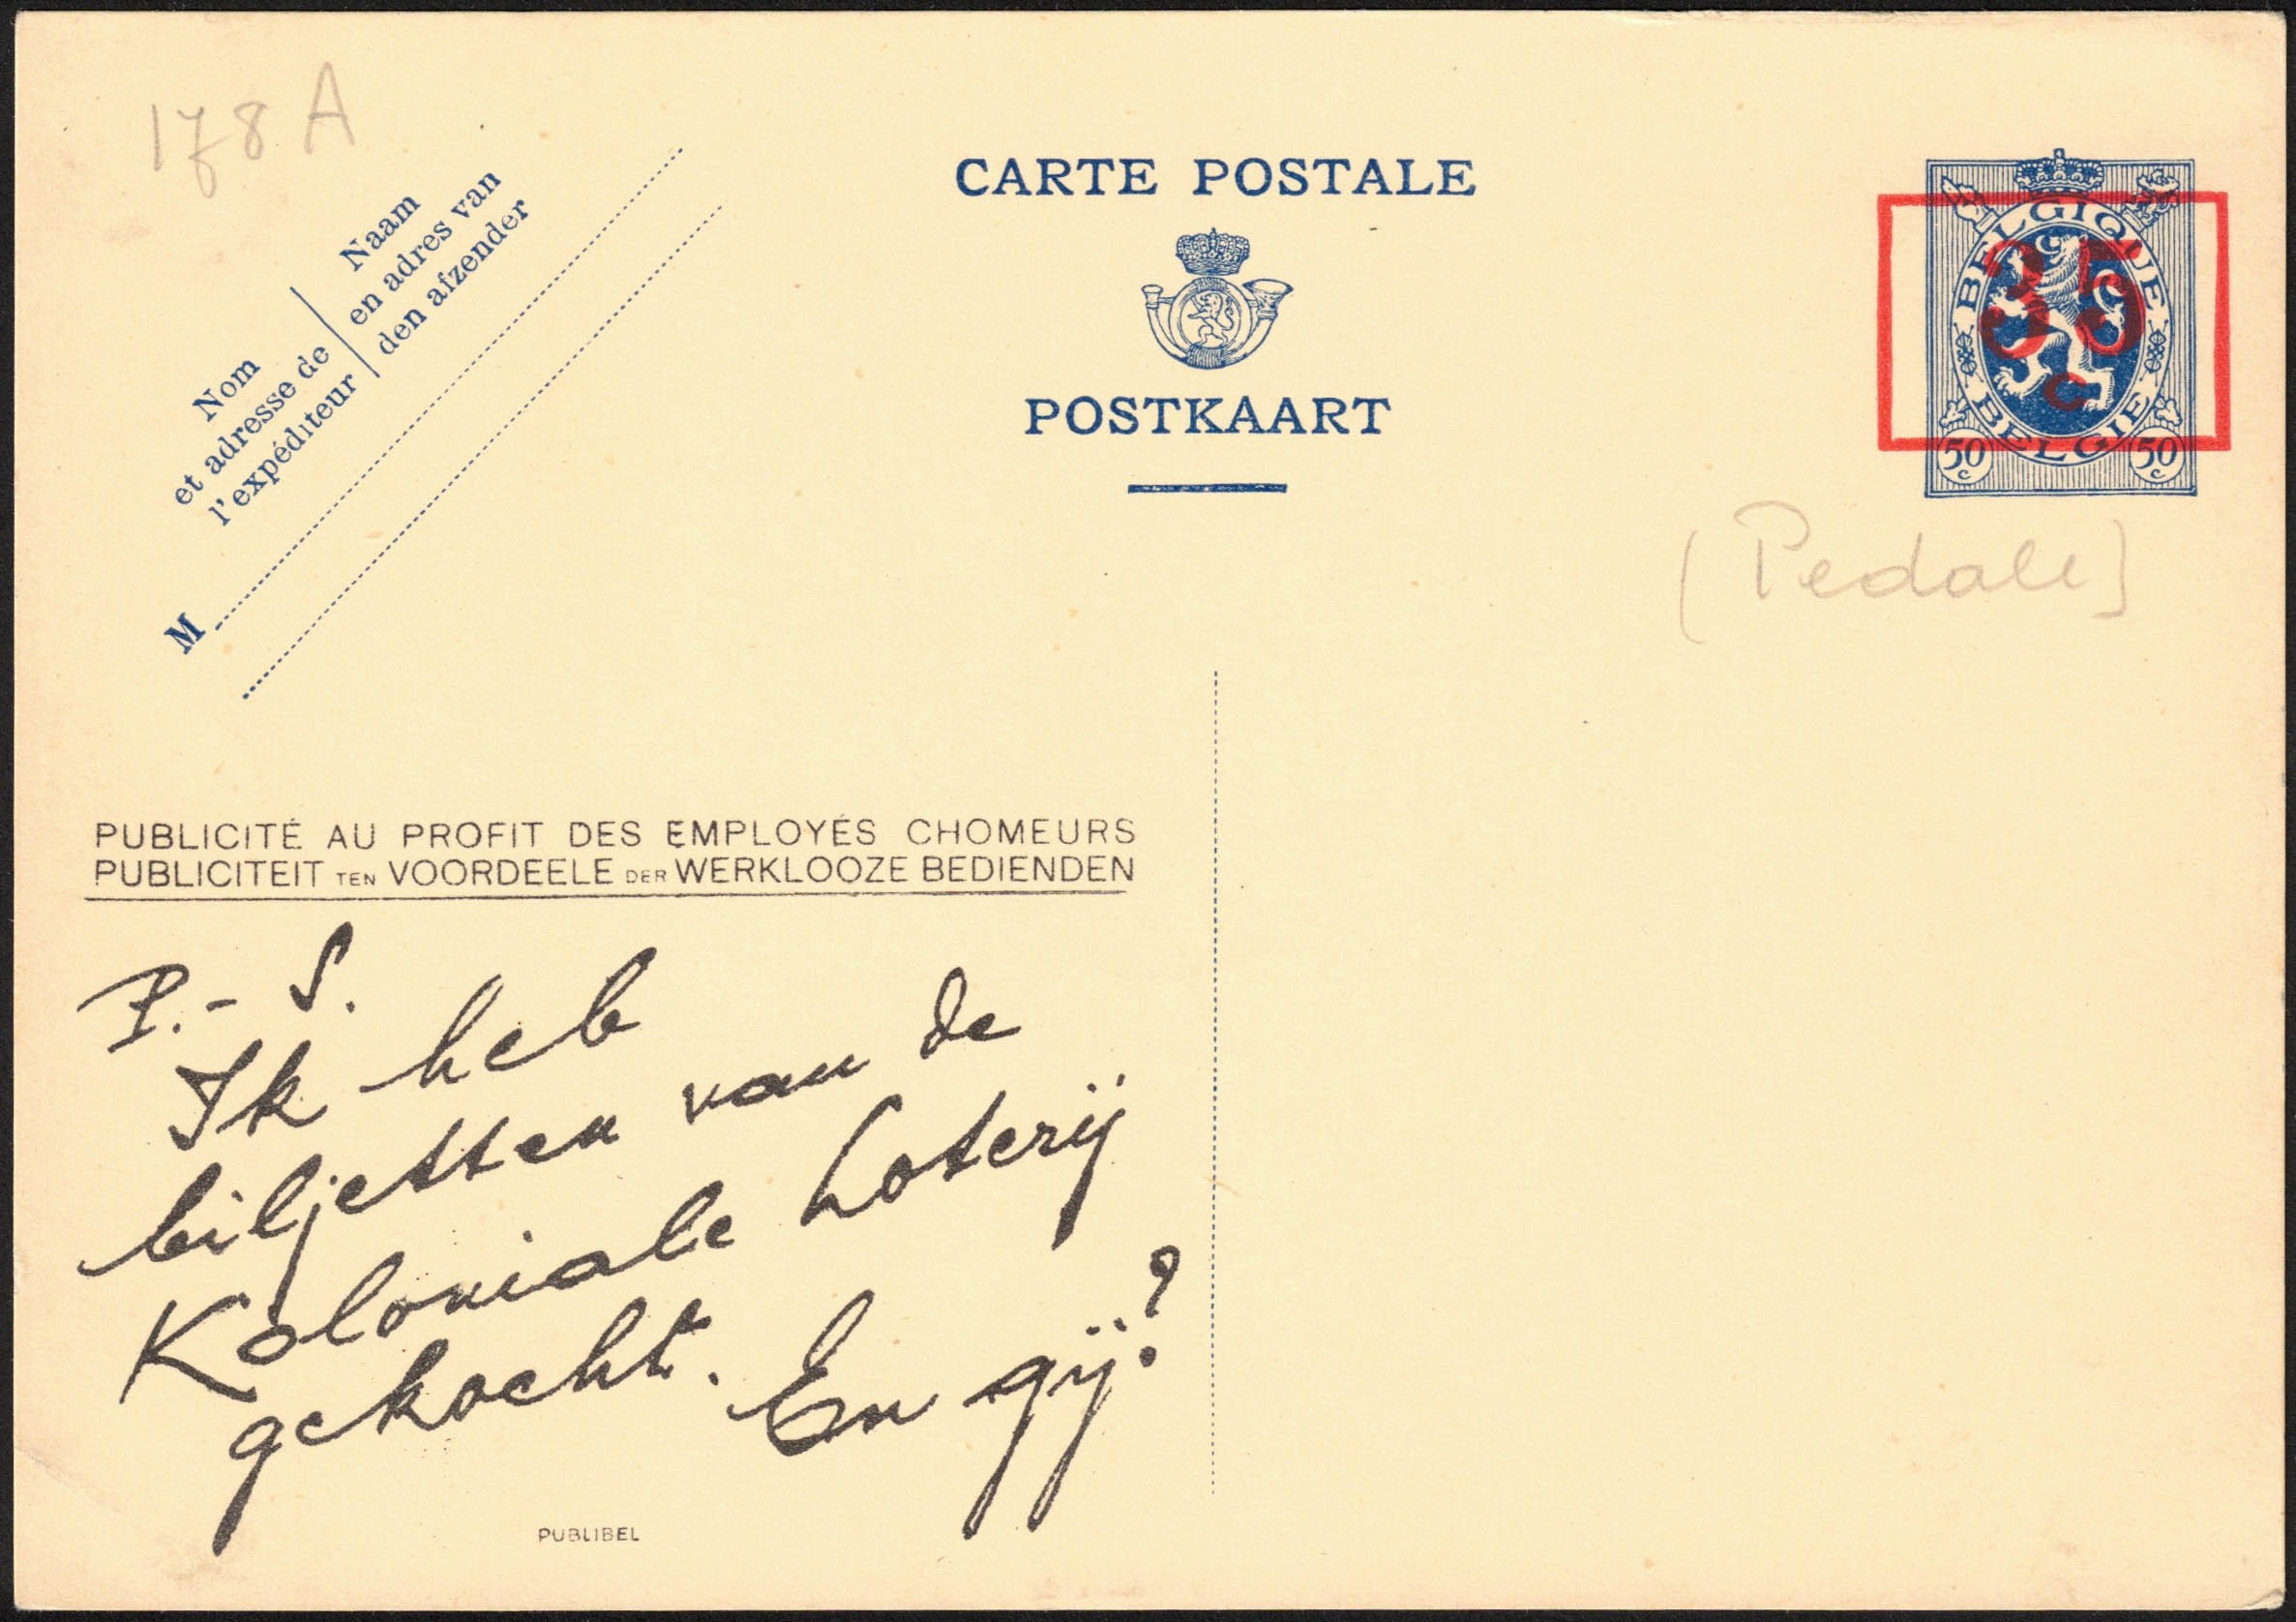 178 A
Nom
et adresse de
l'expéditeur
Naam
en adres van
den afzender
M
CARTE POSTALE
POSTKAART
BELGIQUE
35
c
BELGIË
50 c
50 c
(Pedale)
PUBLICITÉ AU PROFIT DES EMPLOYÉS CHOMEURS
PUBLICITEIT TEN VOORDEELE DER WERKLOOZE BEDIENDEN
P.-S.
Ik heb
biljetten van de
Koloniale Loterij
gekocht. En gij?
PUBLIBEL